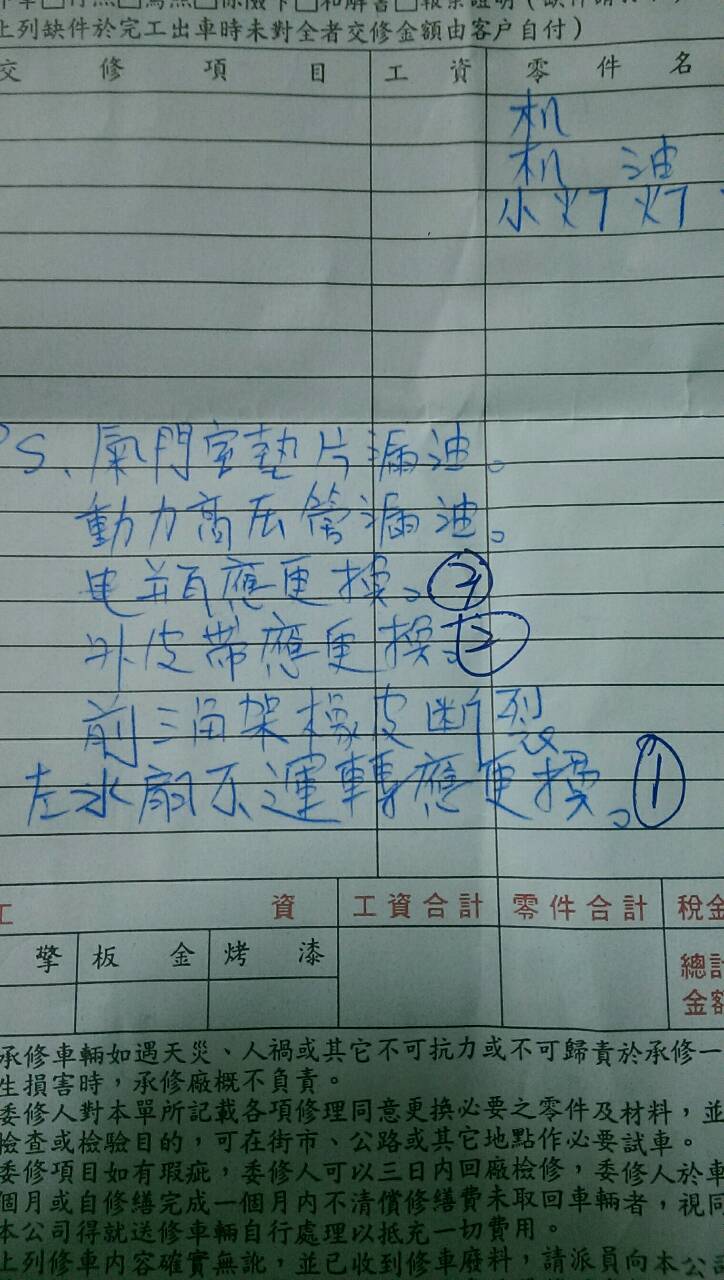 上列缺件於完工出車時未對全者交修金額由客户自付)
交修項目 工資 零件名
机
机 油
小灯 灯
PS、氣門室墊片漏油。
動力高压管漏油。
电瓶應更換。③
外皮帶應更換。②
前三角架橡皮斷裂
左水扇不運轉應更換。①
工資 工資合計 零件合計 稅金
擎 板金 烤漆 總計
金額
承修車輛如遇天災、人禍或其它不可抗力或不可歸責於承修一
生損害時，承修廠概不負責。
委修人對本單所記載各項修理同意更換必要之零件及材料，並
檢查或檢驗目的，可在街市、公路或其它地點作必要試車。
委修項目如有瑕疵，委修人可以三日內回廠檢修，委修人於車
個月或自修繕完成一個月內不清償修繕費未取回車輛者，視同
本公司得就送修車輛自行處理以抵充一切費用。
上列修車內容確實無訛，並已收到修車廢料，請派員向本公司